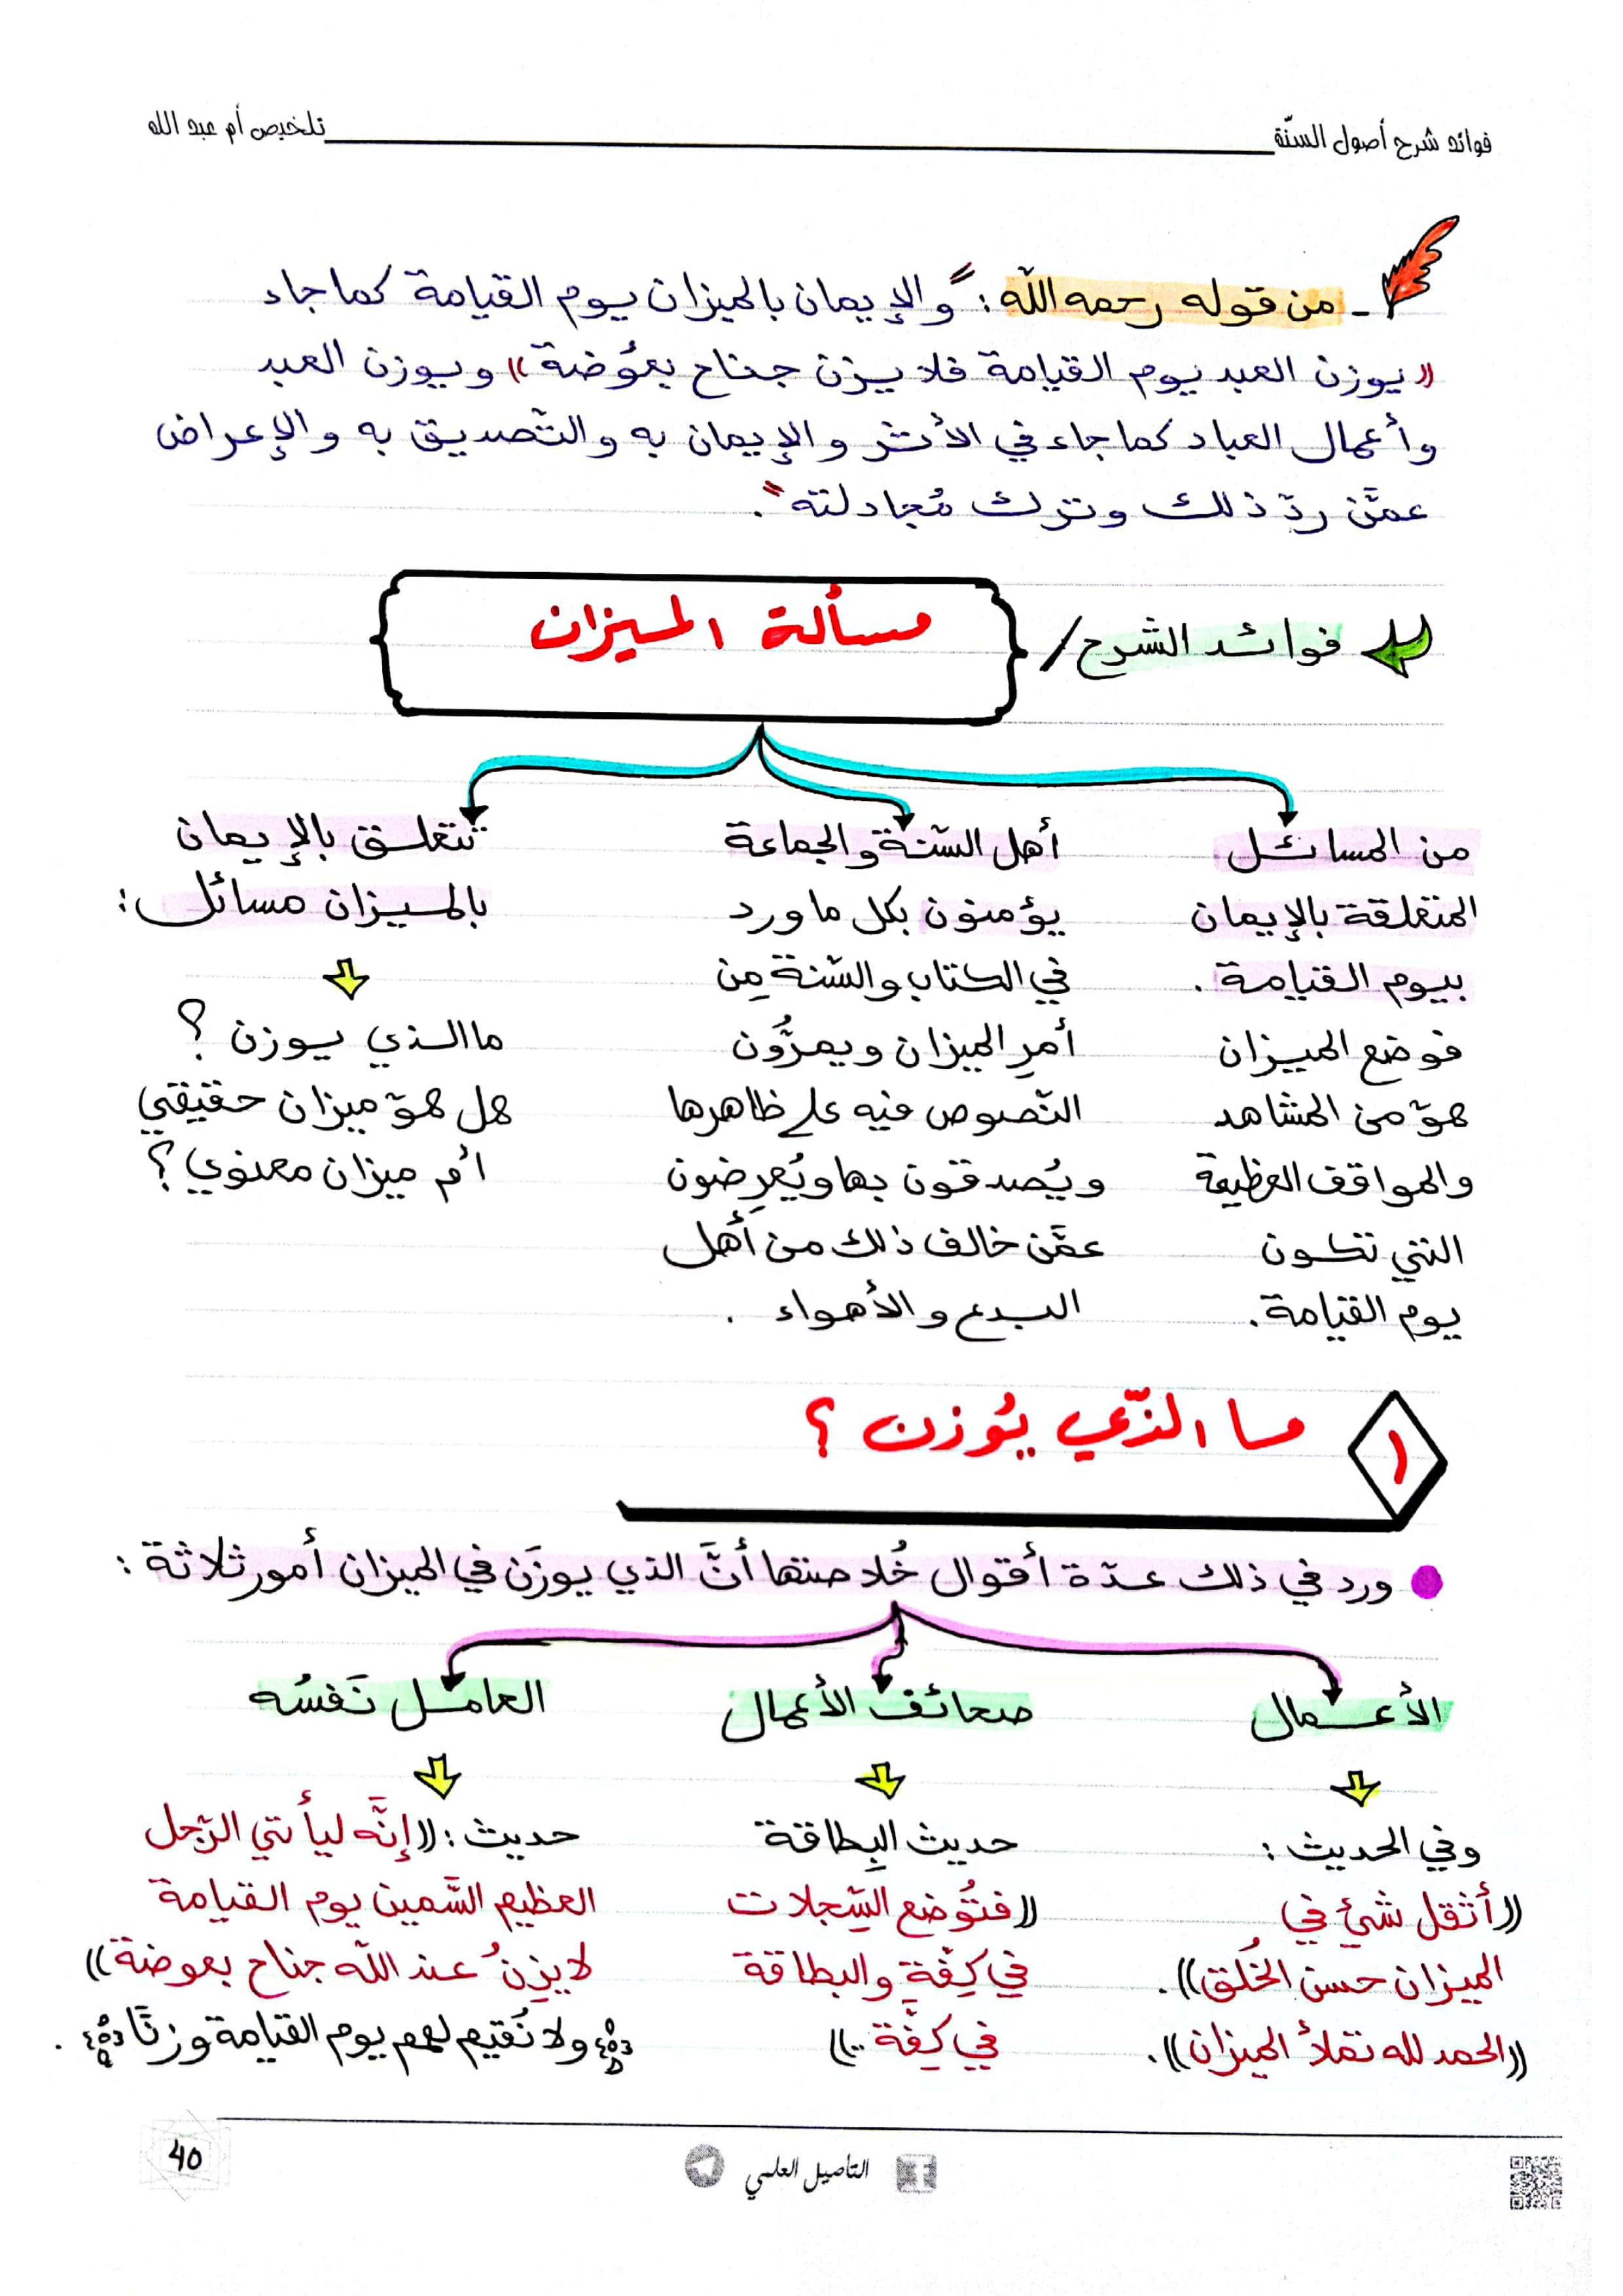 فوائد شرح أصول السنّة
تلخيص أم عبد الله
ـ من قوله رحمه الله : "والإيمان بالميزان يوم القيامة كما جاء
« يوزن العبد يوم القيامة فلا يزن جناح بعُوضة » ويوزن العبد
وأعمال العباد كما جاء في الأثر والإيمان به والتّصديق به والإعراض
عمَّن ردّ ذلك وترك مُجادلته".
فوائد الشرح /
مسألة الميزان
من المسائل
المتعلقة بالإيمان
بيوم القيامة .
فوضع الميزان
هوّ من المشاهد
والمواقف العظيمة
التي تكون
يوم القيامة .
أهل السّنة والجماعة
يؤمنون بكل ما ورد
في الكتاب والسّنة مِن
أمرِ الميزان ويمرُّون
النّصوص فيه على ظاهرها
ويُصدقون بها ويُعرِضون
عمَّن خالف ذلك من أهل
البدع والأهواء .
تتعلق بالإيمان
بالميزان مسائل :
ما الذي يوزن ؟
هل هوّ ميزان حقيقي
أم ميزان معنوي ؟
١
ما الذّي يُوزن ؟
ورد في ذلك عدّة أقوال خُلاصتها أنَّ الذي يوزَن في الميزان أمور ثلاثة :
الأعمال
وفي الحديث :
((أثقل شيئ في
الميزان حسن الخُلق)) .
((الحمد لله تملأ الميزان)) .
صحائف الأعمال
حديث البِطاقة
((فتُوضع السِّجلات
في كِفّةٍ والبطاقة
في كِفَّة ..))
العامل نَفسُه
حديث : ((إنَّه ليأتي الرّجل
العظيم السَّمين يوم القيامة
لا يزِنُ عند الله جناح بعوضة))
﴿ولا نُقيم لهم يوم القيامة وزنًا﴾ .
التأصيل العلمي
40